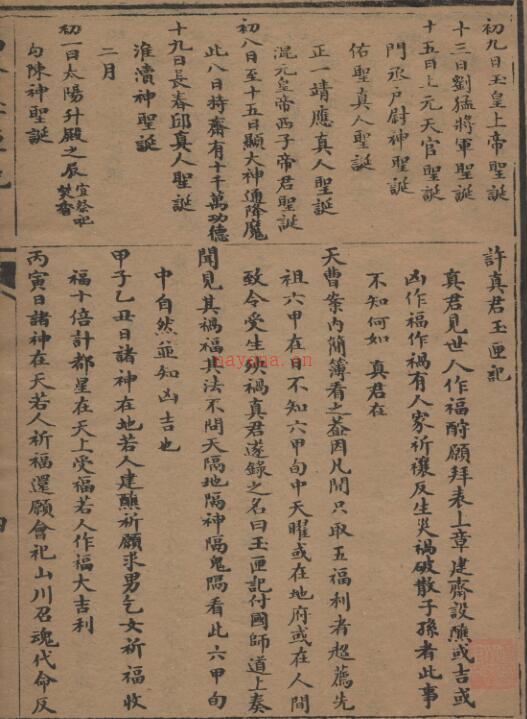 初九日玉皇上帝聖誕
十三日劉猛將軍聖誕
十五日上元天官聖誕
門丞户尉神聖誕
佑聖真人聖誕
正一靖應真人聖誕
混元皇帝西子帝君聖誕
初八日至十五日顯大神通降魔
此八日持齋有十千萬功德
十九日長春邱真人聖誕
淮瀆神聖誕
二月
初一日太陽升殿之辰宜祭祀焚香
勾陳神聖誕
許真君玉匣記
真君見世人作福酧願拜表上章建齋設醮或吉或
凶作福作禍有人家祈禳反生災禍破散子孫者此事
不知何如 真君在
天曹案内簡簿看之葢因凡間只取五福利者超薦先
祖六甲在日不知六甲旬中天曜或在地府或在人間
致令受生殃禍真君遂錄之名曰玉匣記付國師道上奏
聞見其禍福其法不問天隔地隔神隔鬼隔看此六甲旬
中自然並知凶吉也
甲子乙丑日諸神在地若人建醮祈願求男乞女祈福收
福十倍計都星在天上受福若人作福大吉利
丙寅日諸神在天若人祈福還願會祀山川召魂代命反
nayona.cn